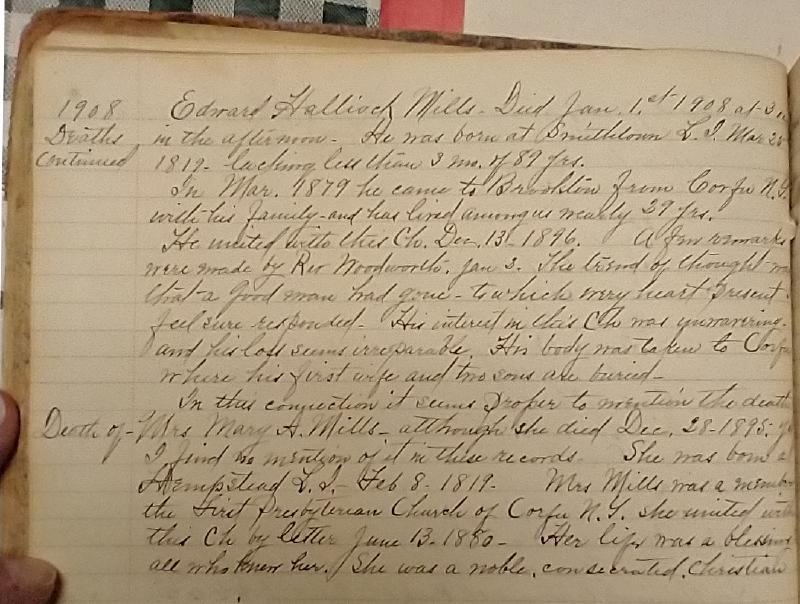 1908 Edward Halliock Mills - Died Jan. 1.st 1908 at 3
Deaths in the afternoon - He was born at Smithtown L.I. Mar. 
Continued 1819 - lacking less than 3 mo. of 89 yrs.
In Mar. 1879 he came to Brockton from Corfu N.Y.
with his family - and has lived among us nearly 29 yrs.
He united with this Ch. Dec. 13 - 1896. A few remarks
were made by Rev Woodworth. Jan 3. The trend of thought
that a good man had gone - to which every heart present
feel sure responded - His interest in this Ch was unwavering -
and his loss seems irreparable. His body was taken to Corfu
where his first wife and two sons are buried -
In this connection it seems proper to mention the death
Death of - Mrs. Mary A. Mills - although she died Dec. 28 - 1895 -
I find no mention of it in these records. She was born
Hempstead L.I. - Feb 8 - 1819 - Mrs Mills was a member
the First Presbyterian Church of Corfu N.Y. she united with
this Ch by letter June 13 - 1880 - Her life was a blessing
all who knew her. She was a noble, consecrated, Christian